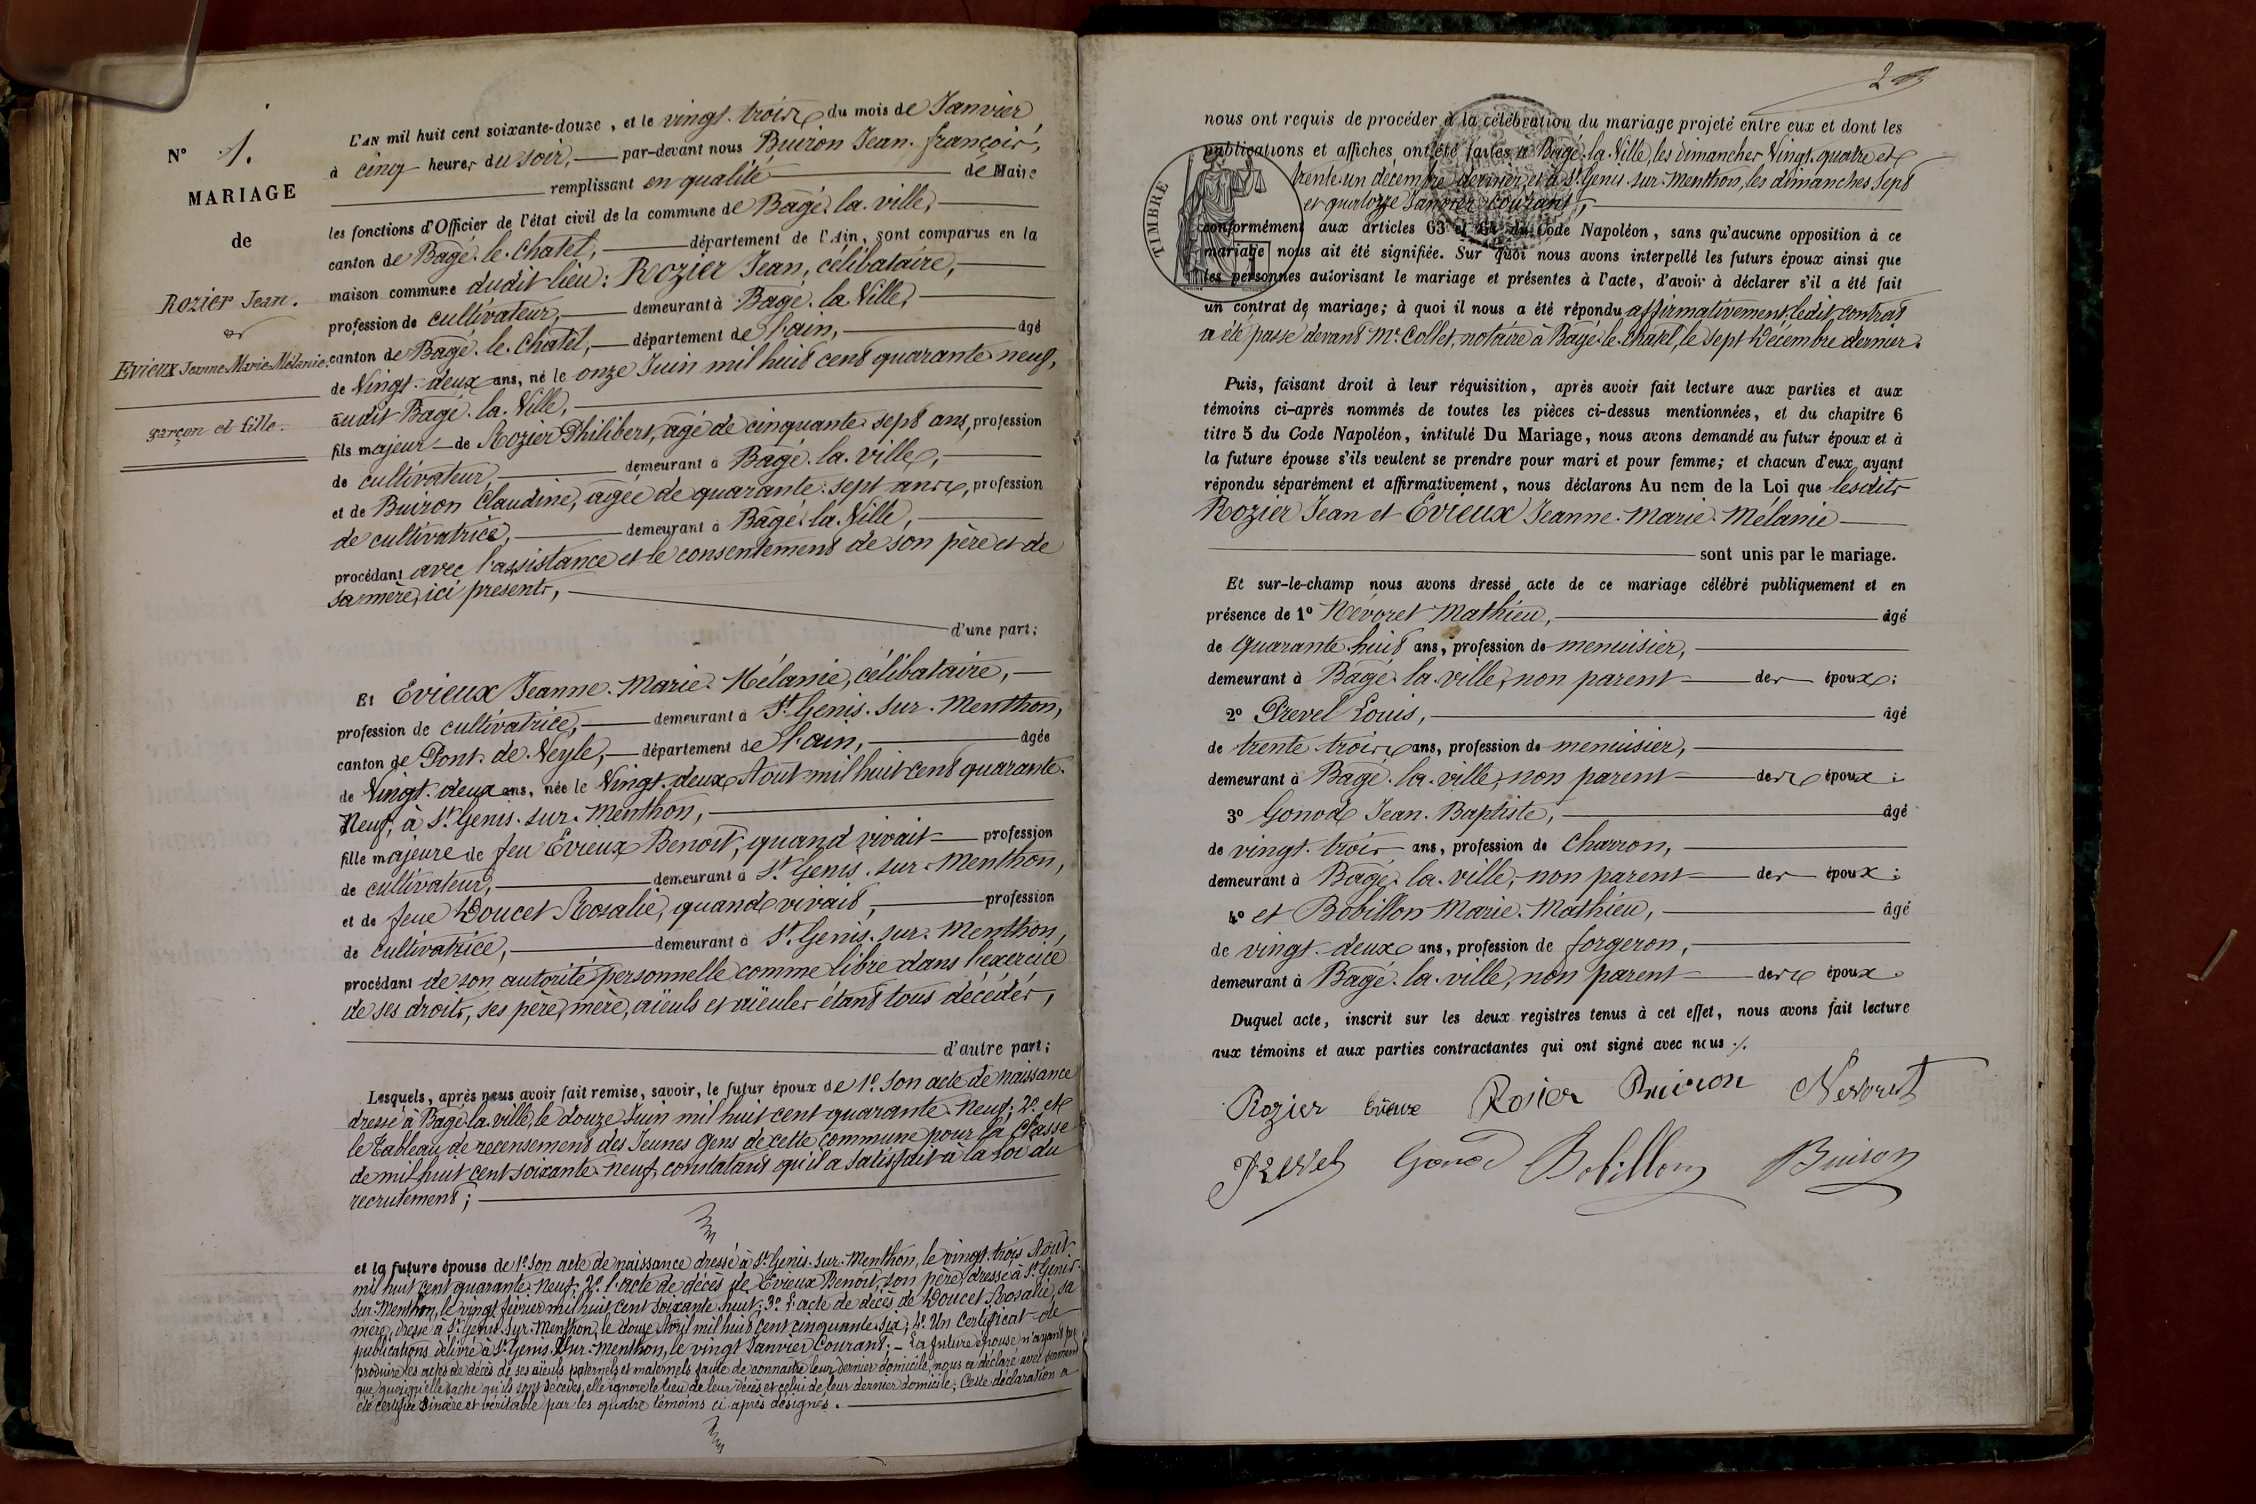 N° 1.
MARIAGE
de
Rozier Jean.
et
Evieux Jeanne-Marie-Mélanie.
garçon et fille.
L'AN mil huit cent soixante-douze, et le vingt-trois du mois de Janvier,
à cinq heures du soir, par-devant nous Buiron Jean-françois,
remplissant en qualité de Maire
les fonctions d'Officier de l'état civil de la commune de Bagé-la-ville,
canton de Bagé-le-Chatel, département de l'Ain, sont comparus en la
maison commune dudit lieu: Rozier Jean, célibataire,
profession de cultivateur, demeurant à Bagé-la-Ville,
canton de Bagé-le-Chatel, département de l'ain, âgé
de Vingt-deux ans, né le onze Juin mil huit cent quarante-neuf,
audit Bagé-la-Ville,
fils majeur de Rozier Philibert, âgé de cinquante-sept ans, profession
de cultivateur, demeurant à Bagé-la-ville,
et de Buiron Claudine, âgée de quarante-sept ans, profession
de cultivatrice, demeurant à Bagé-la-Ville,
procédant avec l'assistance et le consentement de son père et de
sa mère, ici présents,
d'une part;
Et Evieux Jeanne-Marie-Mélanie, célibataire,
profession de cultivatrice, demeurant à St Genis-sur-Menthon,
canton de Pont-de-Veyle, département de l'ain, âgée
de Vingt-deux ans, née le Vingt-deux Aout mil huit cent quarante-
Neuf, à St Genis-sur-Menthon,
fille majeure de feu Evieux Benoit, quand vivait profession
de cultivateur, demeurant à St Genis-sur-Menthon,
et de feue Doucet Rosalie, quand vivait, profession
de cultivatrice, demeurant à St Genis-sur-Menthon,
procédant de son autorité personnelle comme libre dans l'exercice
de ses droits, ses père, mère, aïeuls et aïeules étant tous décédés,
d'autre part;
Lesquels, après nous avoir fait remise, savoir, le futur époux de 1° Son acte de naissance
dressé à Bagé-la-ville, le douze Juin mil huit cent quarante-neuf; 2° et
le Tableau de recensement des Jeunes gens de cette commune pour la Classe
de mil huit cent soixante-neuf, constatant qu'il a satisfait à la loi du
recrutement;
et la future épouse de 1° Son acte de naissance dressé à St Genis-sur-Menthon, le vingt-trois Aout
mil huit cent quarante-Neuf; 2° l'acte de décès de Evieux Benoit, son père, dressé à St Genis-
sur-Menthon, le vingt février mil huit cent soixante-huit; 3° L'acte de décès de Doucet Rosalie, sa
mère, dressé à St Genis-sur-Menthon, le douze Avril mil huit cent cinquante-six; 4° Un Certificat de
publications délivré à St Genis-sur-Menthon, le vingt Janvier Courant. - La future épouse n'ayant pu
produire les actes de décès de ses aïeuls paternels et maternels faute de connaitre leur dernier domicile, nous a déclaré avec serment
que, quoiqu'elle sache qu'ils sont décédés, elle ignore le lieu de leur décès et celui de leur dernier domicile; Cette déclaration a
été certifiée Sincère et véritable par les quatre témoins ci-après désignés.
2
nous ont requis de procéder à la célébration du mariage projeté entre eux et dont les
publications et affiches ont été faites à Bagé-la-Ville, les dimanches Vingt-quatre et
trente-un décembre dernier, et à St Genis-sur-Menthon, les dimanches Sept
et quatorze Janvier courant,
TIMBRE
conformément aux articles 63 et 64 du Code Napoléon, sans qu'aucune opposition à ce
mariage nous ait été signifiée. Sur quoi nous avons interpellé les futurs époux ainsi que
les personnes autorisant le mariage et présentes à l'acte, d'avoir à déclarer s'il a été fait
un contrat de mariage; à quoi il nous a été répondu affirmativement ledit contrat
a été passé devant Me Collet, notaire à Bagé-le-Chatel, le sept Décembre dernier.
Puis, faisant droit à leur réquisition, après avoir fait lecture aux parties et aux
témoins ci-après nommés de toutes les pièces ci-dessus mentionnées, et du chapitre 6
titre 5 du Code Napoléon, intitulé Du Mariage, nous avons demandé au futur époux et à
la future épouse s'ils veulent se prendre pour mari et pour femme; et chacun d'eux ayant
répondu séparément et affirmativement, nous déclarons Au nom de la Loi que lesdits
Rozier Jean et Evieux Jeanne-Marie-Mélanie
sont unis par le mariage.
Et sur-le-champ nous avons dressé acte de ce mariage célébré publiquement et en
présence de 1° Névoret Mathieu, âgé
de quarante-huit ans, profession de menuisier,
demeurant à Bagé-la-ville, non parent des époux;
2° Prevel Louis, âgé
de trente-trois ans, profession de menuisier,
demeurant à Bagé-la-ville, non parent des époux;
3° Gonod Jean-Baptiste, âgé
de vingt-trois ans, profession de Charron,
demeurant à Bagé-la-ville, non parent des époux;
4° et Bobillon Marie-Mathieu, âgé
de vingt-deux ans, profession de forgeron,
demeurant à Bagé-la-ville, non parent des époux.
Duquel acte, inscrit sur les deux registres tenus à cet effet, nous avons fait lecture
aux témoins et aux parties contractantes qui ont signé avec nous ./.
Rozier Evieux Rosier Buiron Nevoret
Prevel Gonod Bobillon Buiron